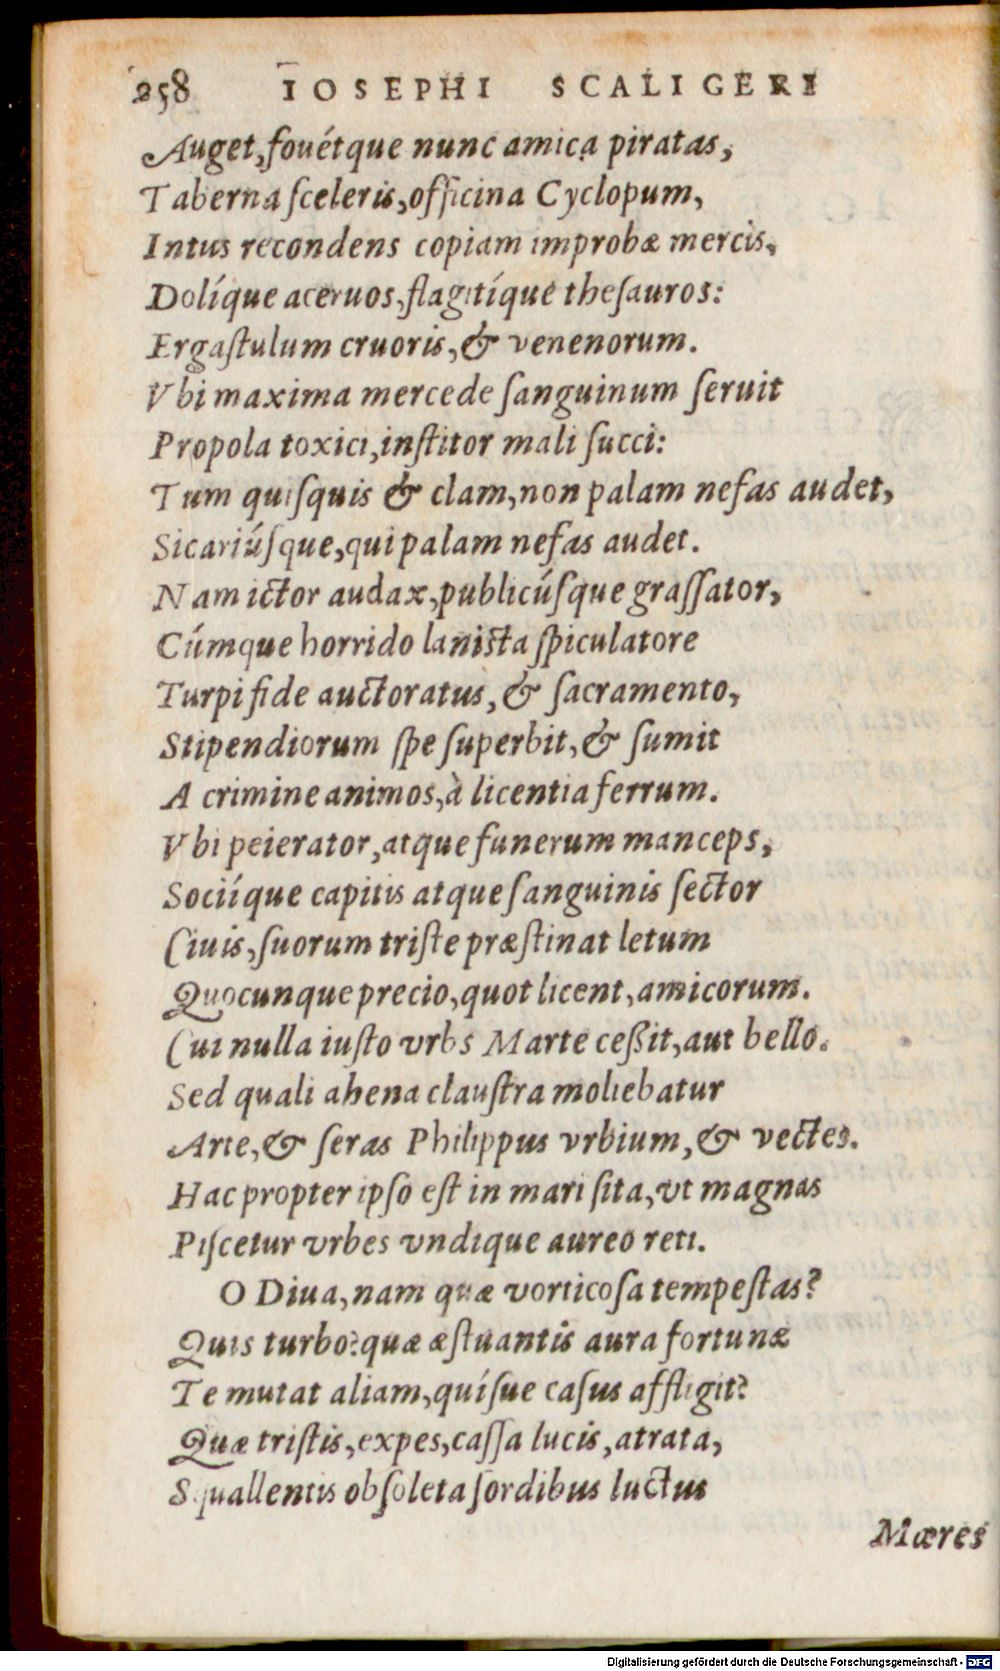 258 IOSEPHI SCALIGERI
Auget, fouétque nunc amica piratas,
Taberna ſceleris, officina Cyclopum,
Intus recondens copiam improbæ mercis,
Dolíque aceruos, flagitíque theſauros:
Ergaſtulum cruoris, & venenorum.
Vbi maxima mercede ſanguinum ſeruit
Propola toxici, inſtitor mali ſucci:
Tum quiſquis & clam, non palam nefas audet,
Sicariúſque, qui palam nefas audet.
Nam ictor audax, publicúſque graſſator,
Cúmque horrido laniſta ſpiculatore
Turpi fide auctoratus, & ſacramento,
Stipendiorum ſpe ſuperbit, & ſumit
A crimine animos, à licentia ferrum.
Vbi peierator, atque funerum manceps,
Sociíque capitis atque ſanguinis ſector
Ciuis, ſuorum triſte præſtinat letum
Quocunque precio, quot licent, amicorum.
Cui nulla iuſto vrbs Marte ceßit, aut bello.
Sed quali ahena clauſtra moliebatur
Arte, & ſeras Philippus vrbium, & vectes.
Hac propter ipſo eſt in mari ſita, vt magnas
Piſcetur vrbes vndique aureo reti.
O Diua, nam quæ vorticoſa tempeſtas?
Quis turbo? quæ æſtuantis aura fortunæ
Te mutat aliam, quíſue caſus affligit?
Quæ triſtis, expes, caſſa lucis, atrata,
Squallentis obſoleta ſordibus luctus
Mæres
Digitalisierung gefördert durch die Deutsche Forschungsgemeinschaft - DFG